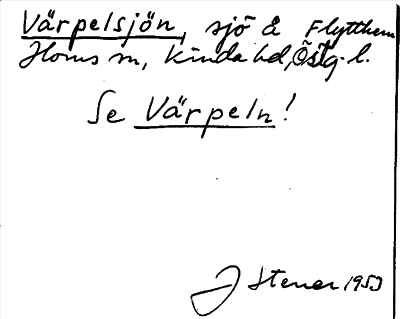 Värpelsjön, sjö å Flytthem
Horns sn, Kinda hd, Östg. l.
Se Värpeln!
J Stener 1953